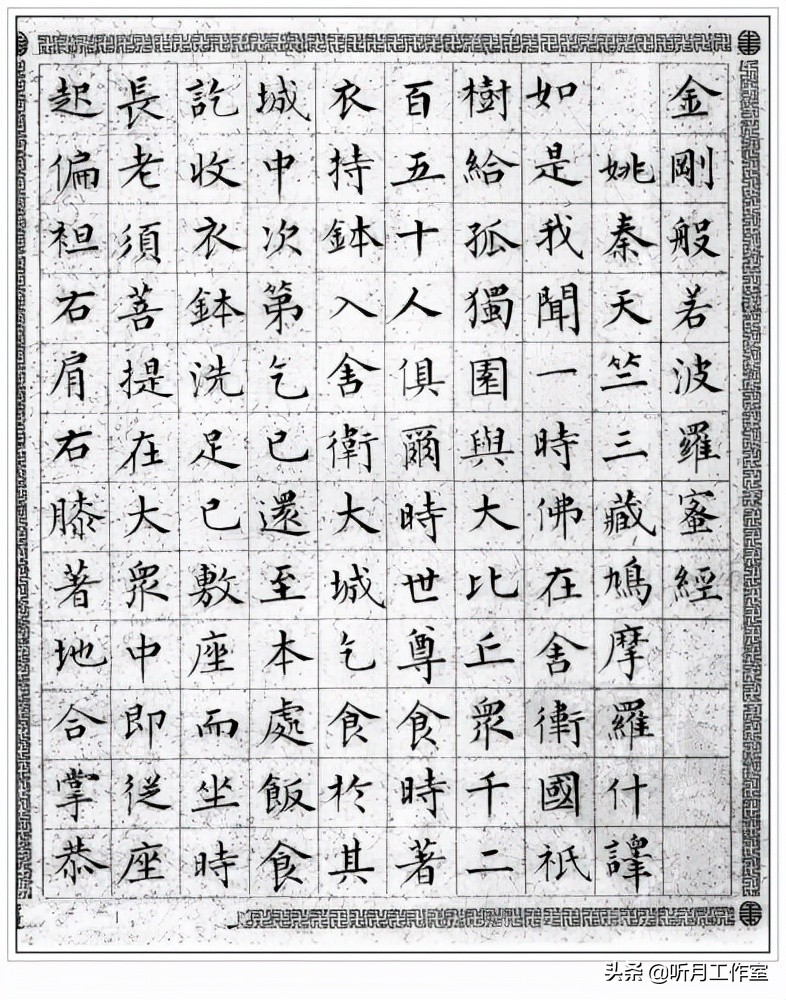 金剛般若波羅蜜經
姚秦天竺三藏鳩摩羅什譯
如是我聞一時佛在舍衛國祇
樹給孤獨園與大比丘眾千二
百五十人俱爾時世尊食時著
衣持鉢入舍衛大城乞食於其
城中次第乞已還至本處飯食
訖收衣鉢洗足已敷座而坐時
長老須菩提在大眾中即從座
起偏袒右肩右膝著地合掌恭
头条 @听月工作室